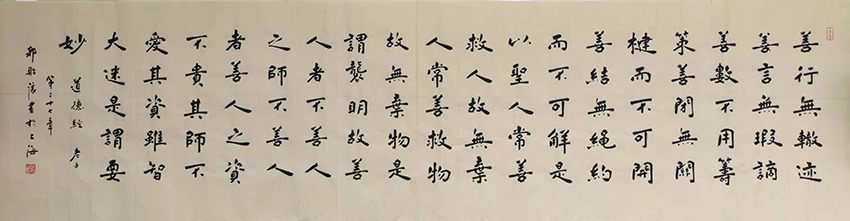 善行無轍迹
善言無瑕謫
善數不用籌
策善閉無關
楗而不可開
善結無繩約
而不可解是
以聖人常善
救人故無棄
人常善救物
故無棄物是
謂襲明故善
人者不善人
之師不善人
者善人之資
不貴其師不
愛其資雖智
大迷是謂要
妙
道德經 老子
第二十七章
書於上海